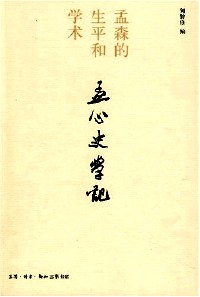 何龄修 编
孟森的
生平和
学术
孟心史学记
生活·读书·新知三联书店